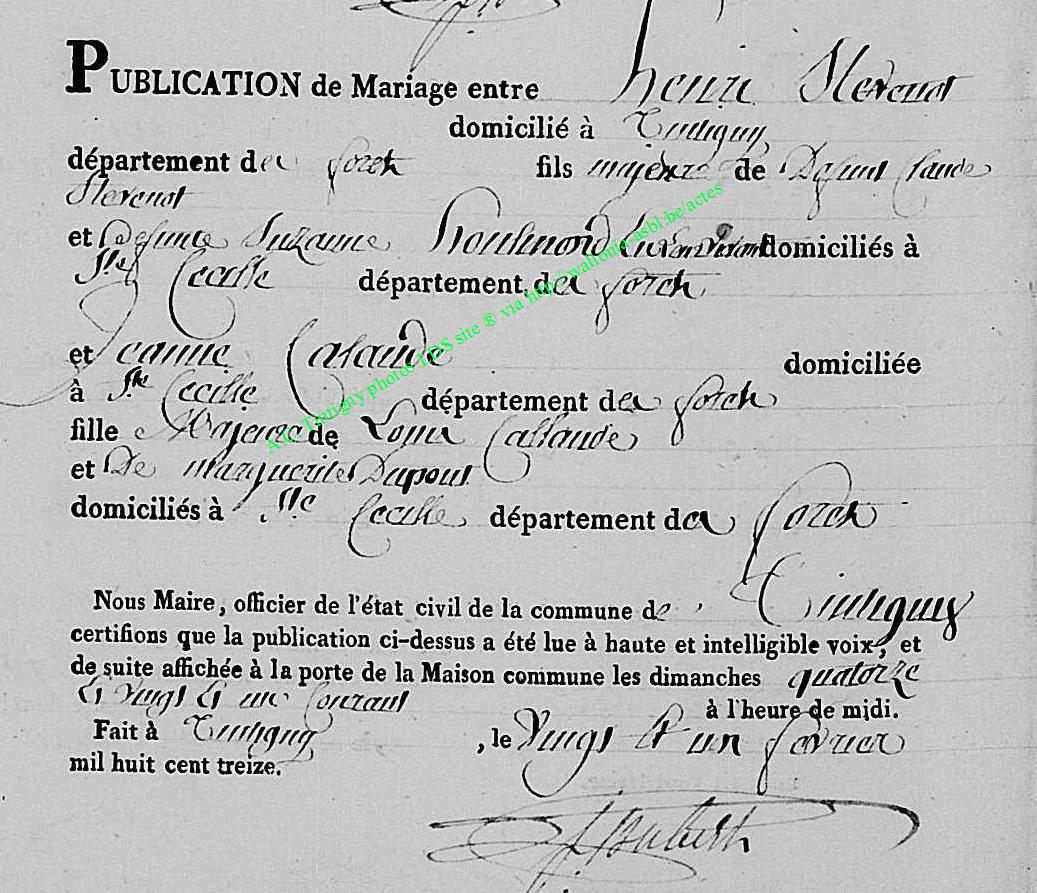 PUBLICATION de Mariage entre henri Stevenot
domicilié à Tintigny
département des forets fils majeur de Defunt Claude
Stevenot
et Defunte Suzanne domiciliés à
Ste Cecille département des forets
et Jeanne Calande domiciliée
à Ste Cecille département des forets
fille Majeure de Louis Callande
et De marguerite Dupont
domiciliés à Ste Cecille département des forets
Nous Maire, officier de l'état civil de la commune de Tintigny
certifions que la publication ci-dessus a été lue à haute et intelligible voix, et
de suite affichée à la porte de la Maison commune les dimanches quatorze
et vingt et un Courant à l'heure de midi.
Fait à Tintigny, le vingt et un fevrier
mil huit cent treize.
A.C. Tintigny photos LDS site ® via http://wallonia-asbl.be/actes